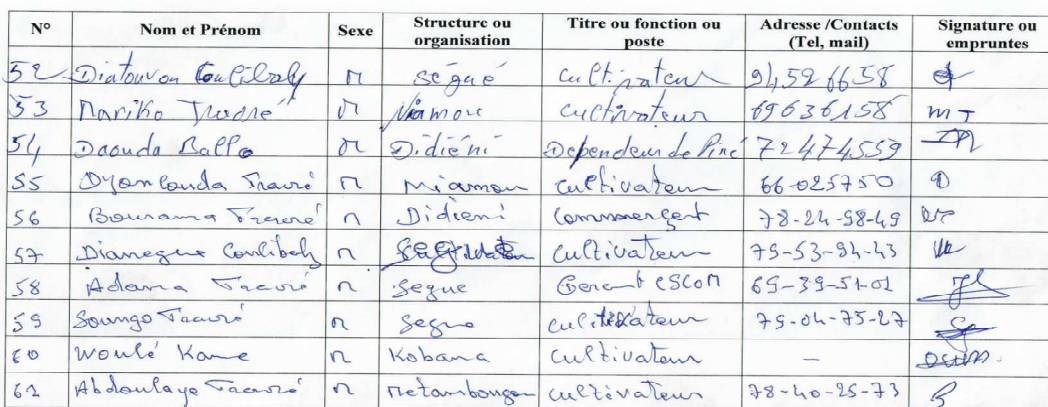 N° Nom et Prénom Sexe Structure ou organisation Titre ou fonction ou poste Adresse /Contacts (Tel, mail) Signature ou empruntes
52 Diatouvon Coulibaly M Ségué cultivateur 94526658
53 Mariko Traoré M Niamou cultivateur 69636158 MT
54 Daouda Ballo M Didiéni Dependeur de Piné 72474559
55 Traoré M Miamou cultivateur 66-025750
56 Bourama Traoré M Didieni Commmergent 78-24-98-49
57 Dianegue Coulibaly M cultivateur 75-53-94-43
58 Adama Traoré M Segue Gerant ESCOM 65-39-51-01
59 Soungo Traoré M Segue cultivateur 75-04-75-27
60 Woulé Kone M Kobana cultivateur –
61 Abdoulaye Traoré M cultivateur 78-40-25-73